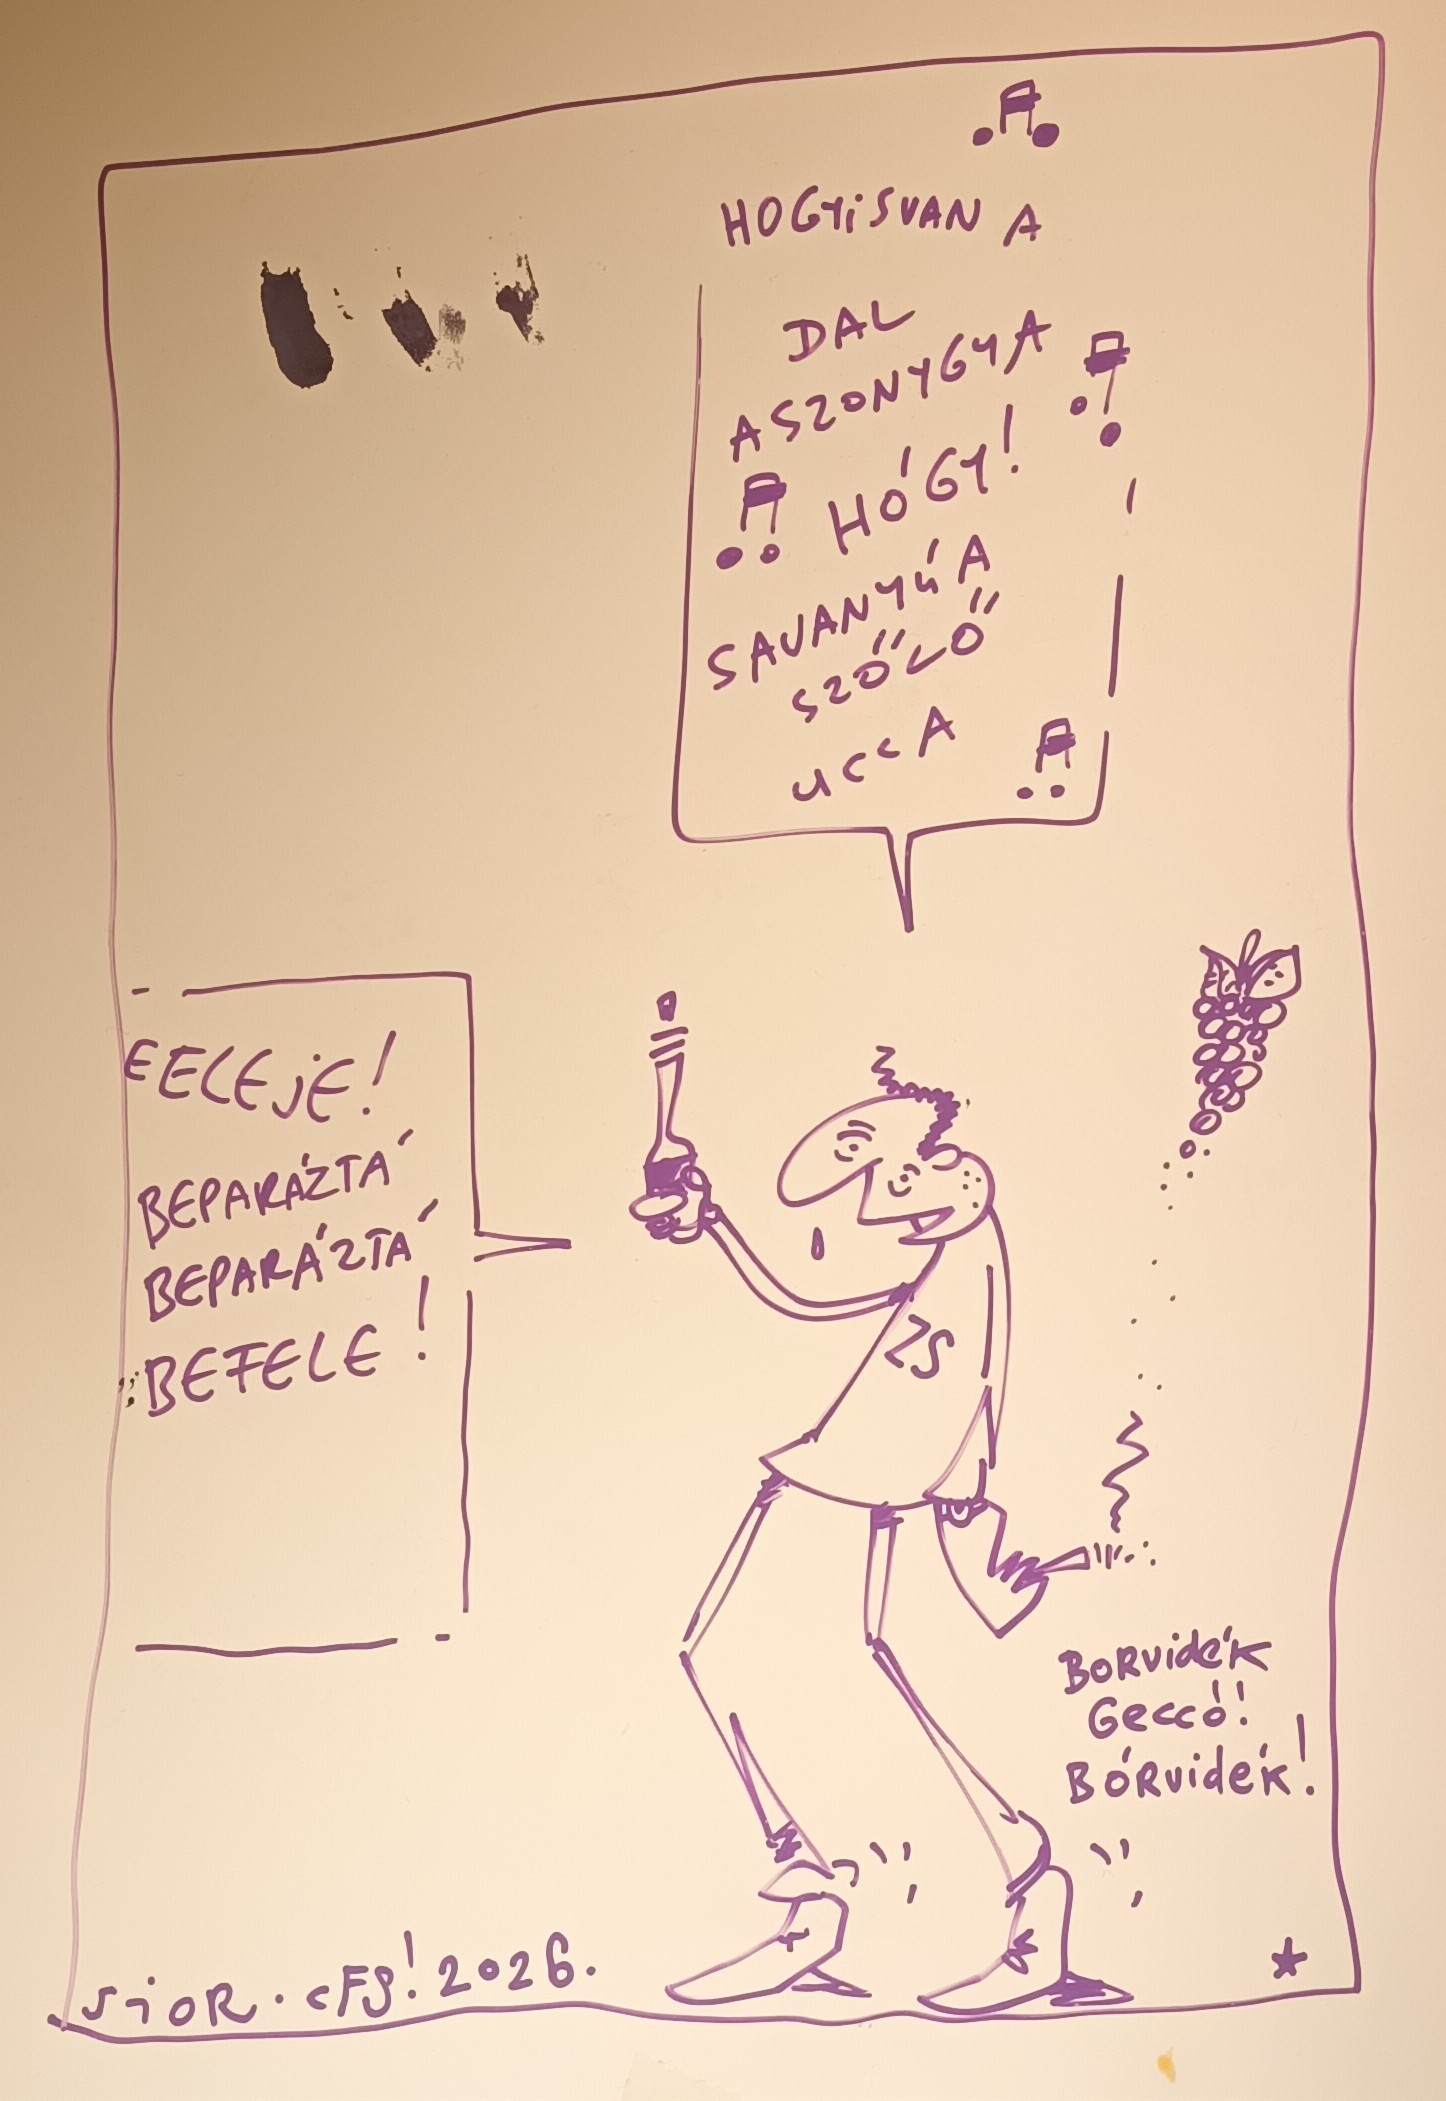 HOGYiSVAN A
DAL
ASZONYGYA
HÓGY!
SAVANYÚ A
SZŐLŐ
UCCA
EELEJE!
BEPARÁZTÁ
BEPARÁZTÁ
BEFELE!
ZS
BORVidÉK
GECCÓ!
BÓRVidÉK!
SiOR. CFS! 2026.